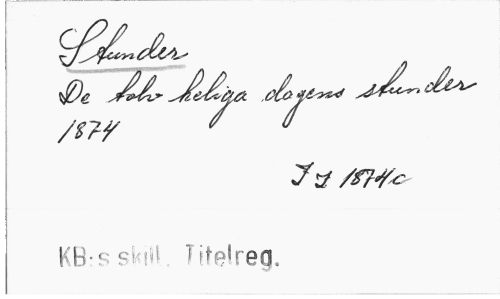 Stunder
De tolv heliga dagens stunder
1874
I I 1874 c
KB:s skill. Titelreg.